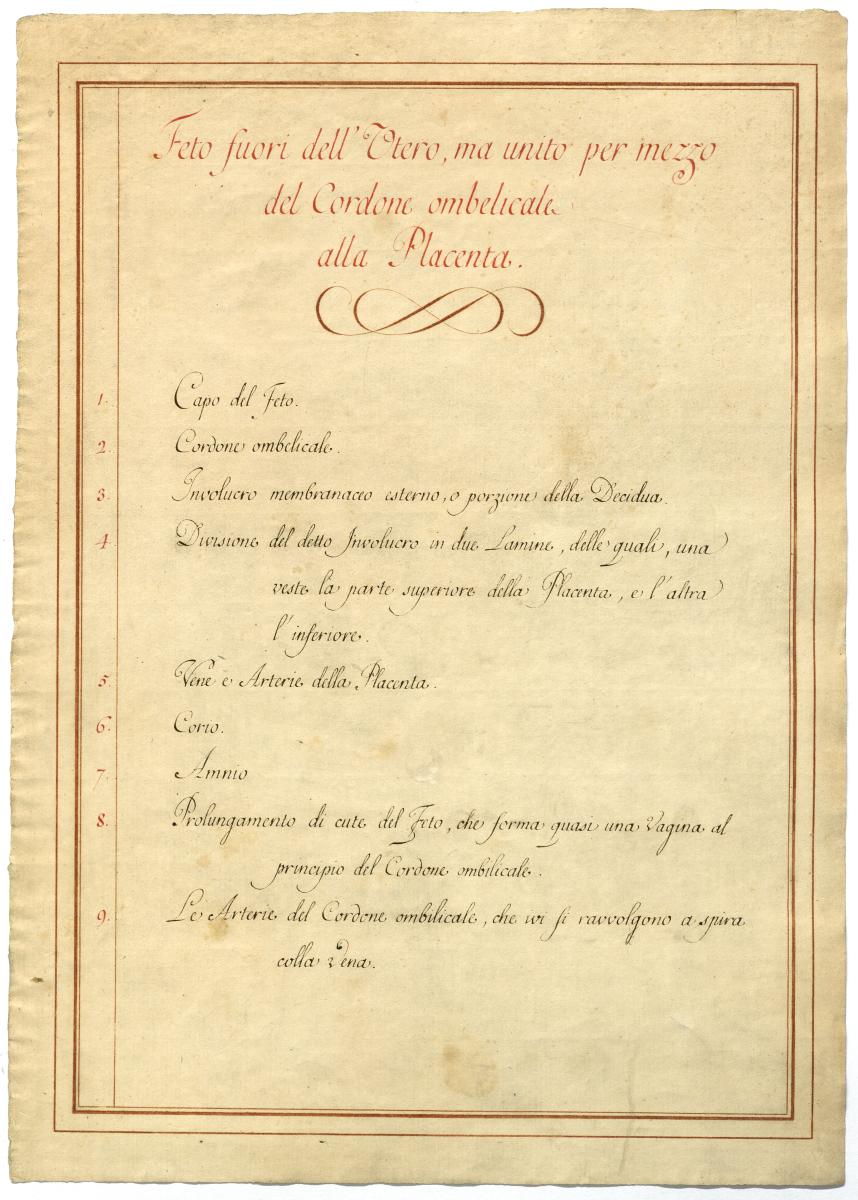 Feto fuori dell' Utero, ma unito per mezzo
del Cordone ombelicale
alla Placenta.
1. Capo del Feto.
2. Cordone ombelicale.
3. Involucro membranaceo esterno, o porzione della Decidua.
4. Divisione del detto Involucro in due Lamine, delle quali, una
veste la parte superiore della Placenta, e l'altra
l'inferiore.
5. Vene e Arterie della Placenta.
6. Corio.
7. Amnio
8. Prolungamento di cute del Feto, che forma quasi una Vagina al
principio del Cordone ombilicale.
9. Le Arterie del Cordone ombilicale, che ivi si ravvolgono a spira
colla Vena.